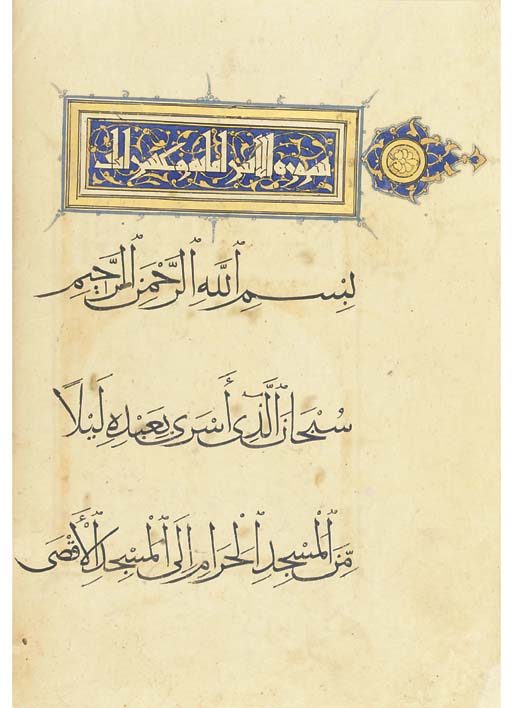 سورة الاسرا
بِسْمِ اللَّهِ الرَّحْمَنِ الرَّحِيمِ
سُبْحَانَ الَّذِى أَسْرَى بِعَبْدِهِ لَيْلًا
مِّنَ الْمَسْجِدِ الْحَرَامِ إِلَى الْمَسْجِدِ الْأَقْصَى